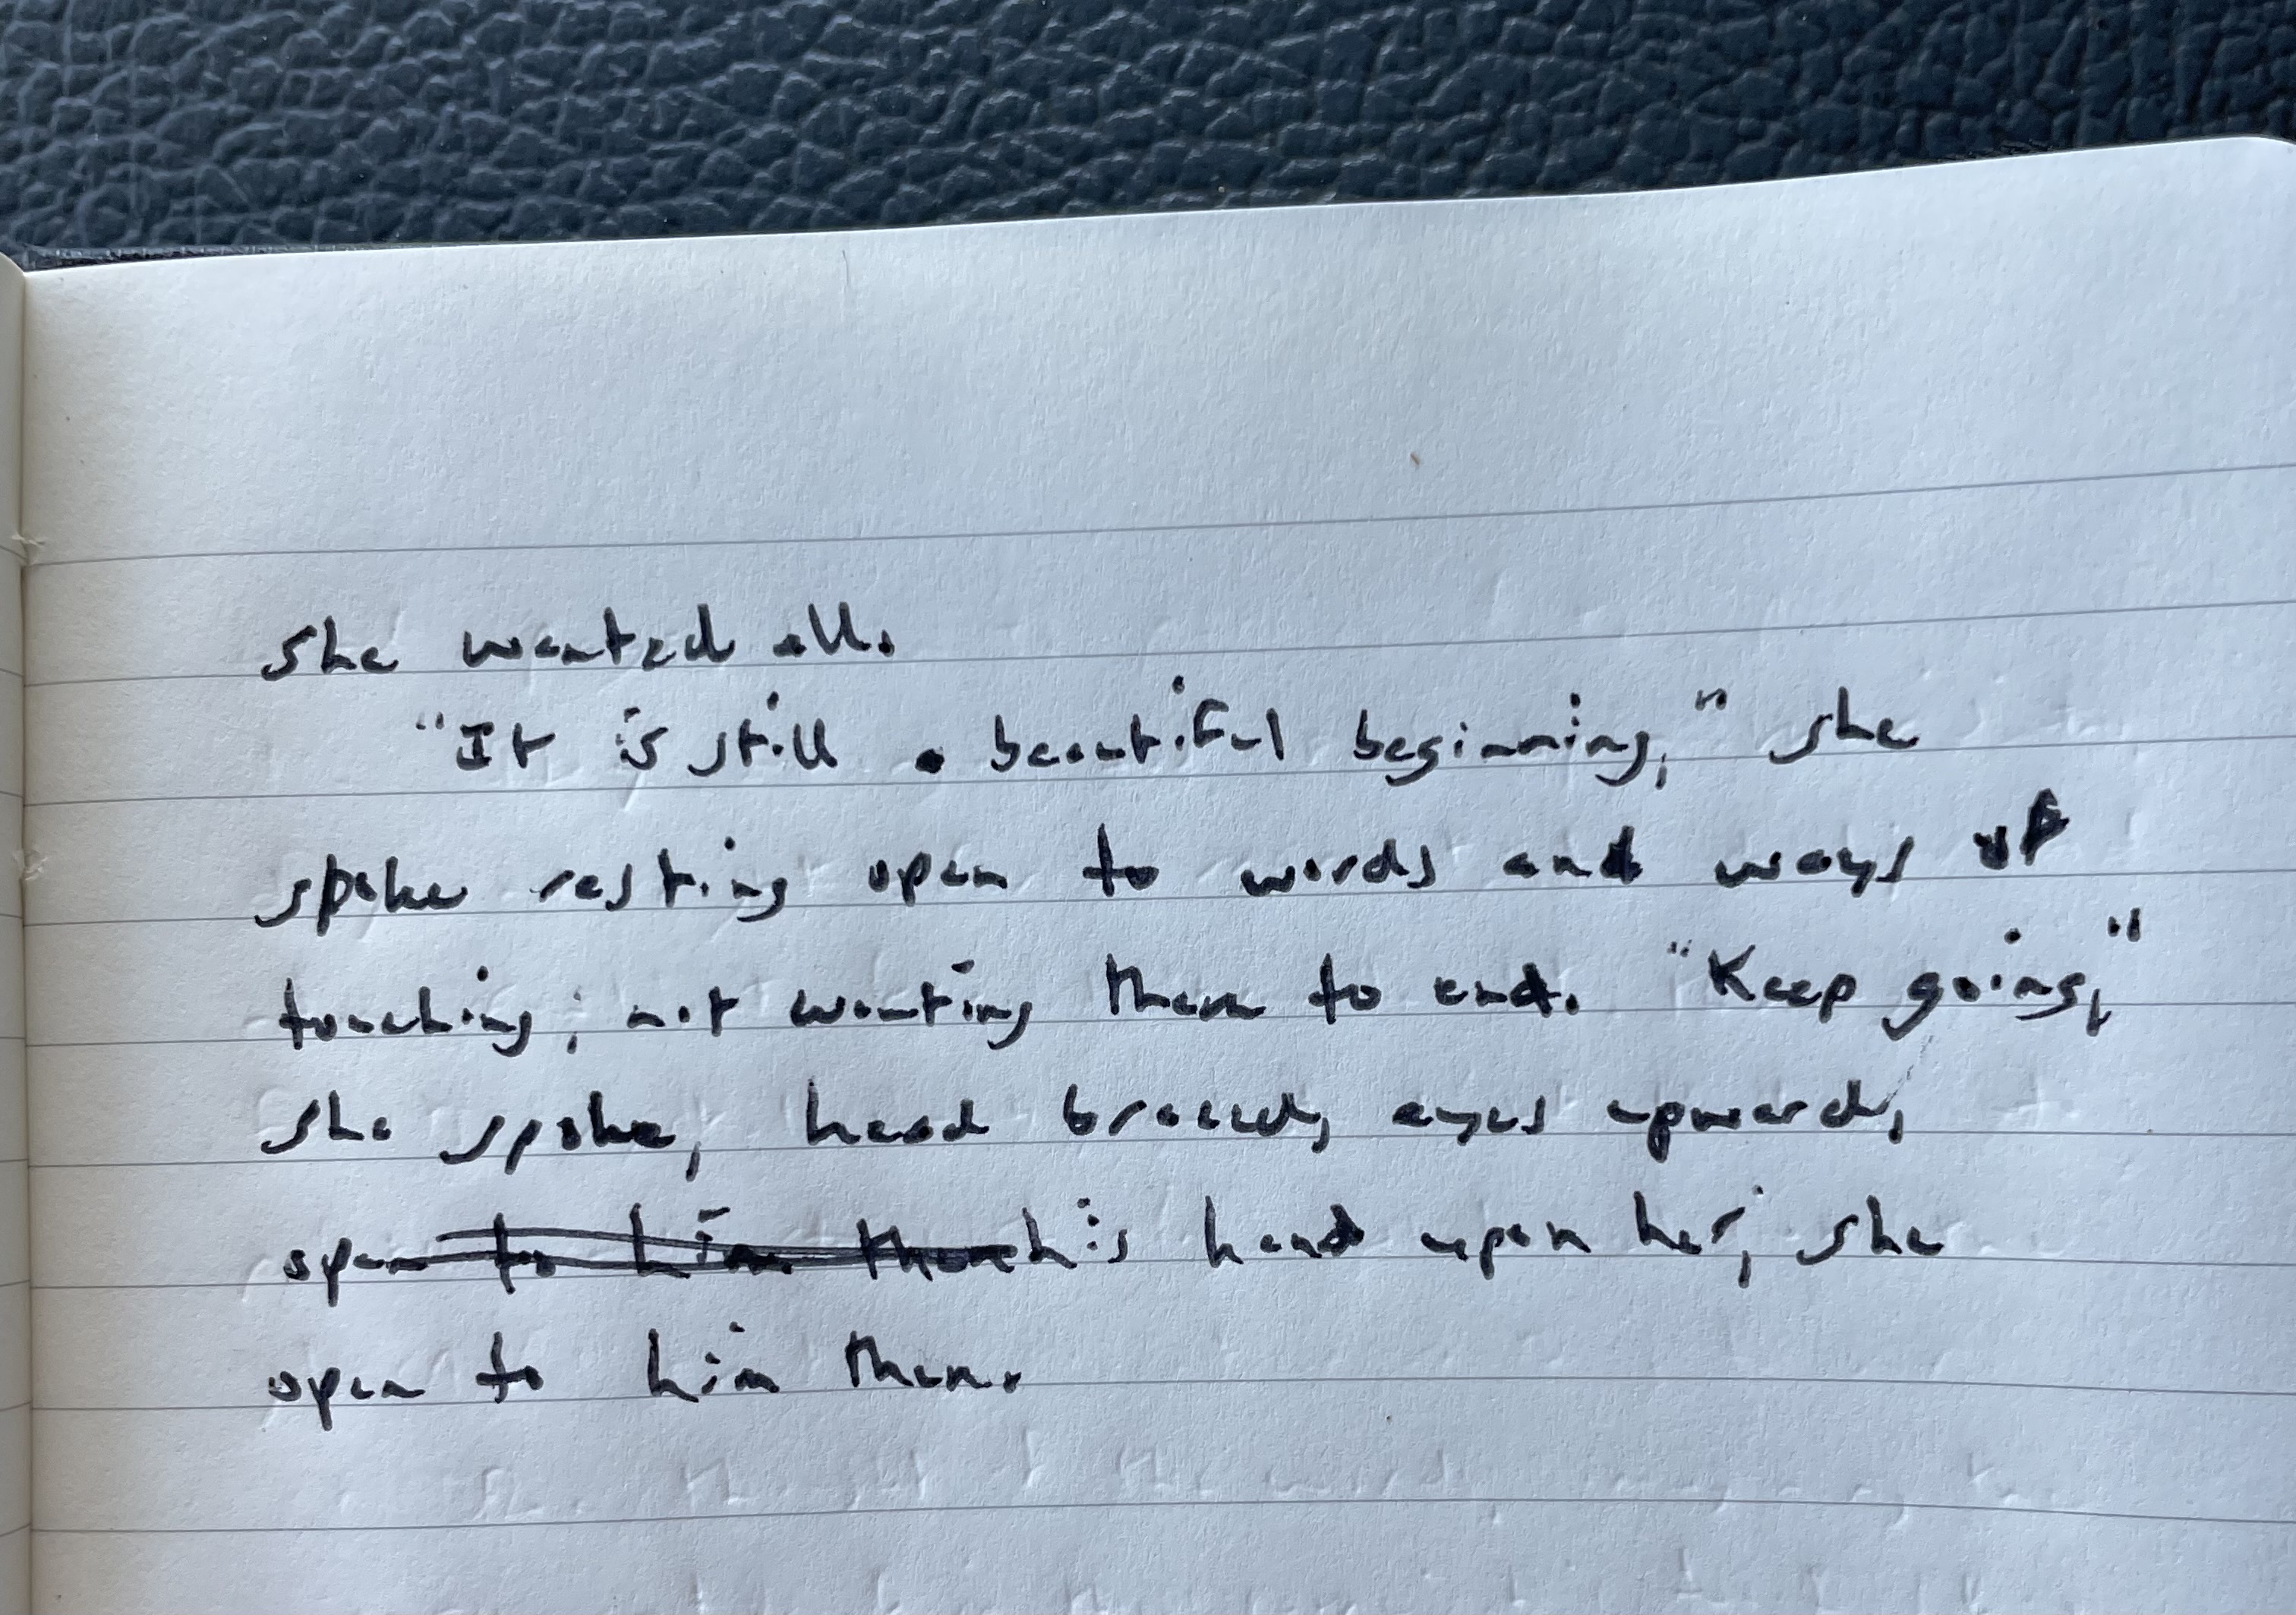 She wanted all.
"It is still a beautiful beginning," she
spoke resting open to words and ways of
touching; not wanting them to end. "Keep going,"
she spoke, head braced, eyes upward,
open to him then his hand upon her; she
open to him then.